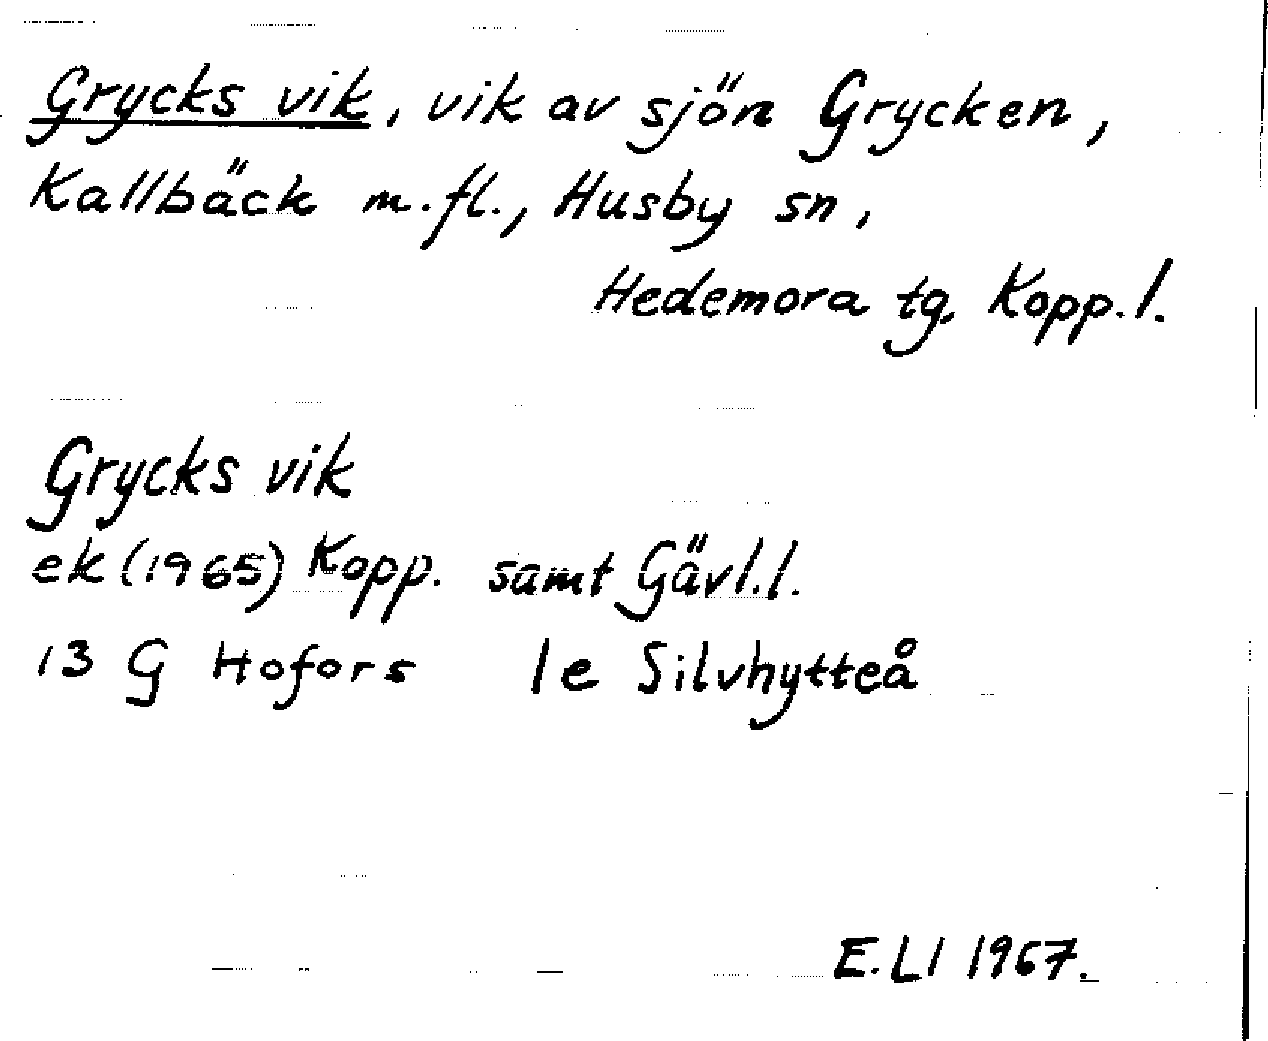 Grycks vik, vik av sjön Grycken,
Kallbäck m.fl., Husby sn,
Hedemora tg. Kopp.l.
Grycks vik
ek (1965) Kopp. samt Gävl.l.
13 G Hofors 1e Silvhytteå
E.Ll 1967.